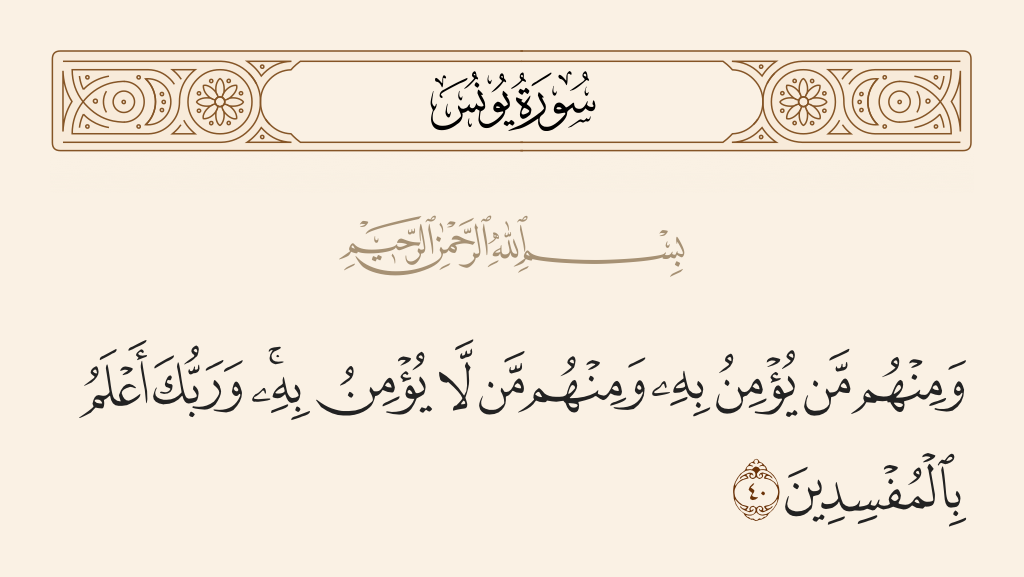 سُورَةُ يُونُسَ
بِسْمِ ٱللَّهِ ٱلرَّحْمَٰنِ ٱلرَّحِيمِ
وَمِنْهُم مَّن يُؤْمِنُ بِهِۦ وَمِنْهُم مَّن لَّا يُؤْمِنُ بِهِۦۚ وَرَبُّكَ أَعْلَمُ
بِٱلْمُفْسِدِينَ ٤٠